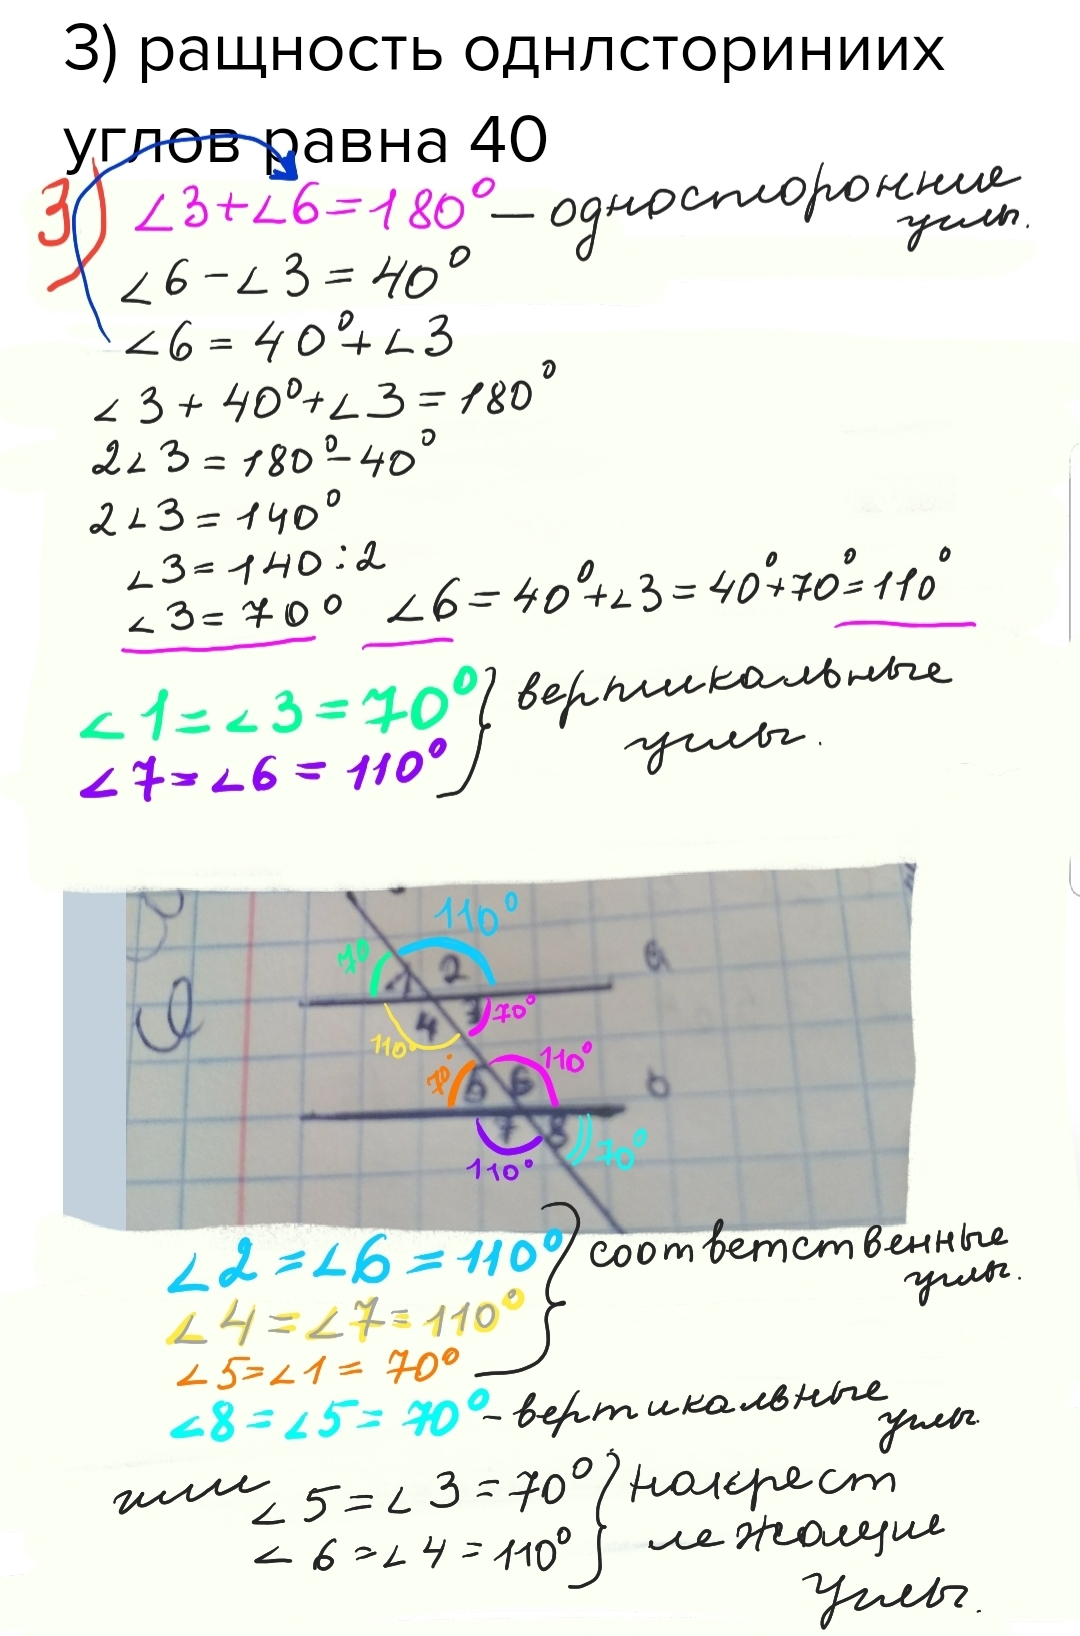 3) ращность однлсториниих
углов равна 40
3) ∠3+∠6=180° — односторонние
углы.
∠6-∠3=40°
∠6=40°+∠3
∠3+40°+∠3=180°
2∠3=180°-40°
2∠3=140°
∠3=140:2
∠3=70° ∠6=40°+∠3=40°+70°=110°
∠1=∠3=70° } вертикальные
∠7=∠6=110° углы.
110°
70 1 2 a
4 3 70°
110°
70° 5 6 110° b
7 8 70°
110°
∠2=∠6=110° } соответственные
углы.
∠4=∠7=110°
∠5=∠1=70°
∠8=∠5=70° - вертикальные
углы
или ∠5=∠3=70° } накрест
∠6=∠4=110° лежащие
углы.